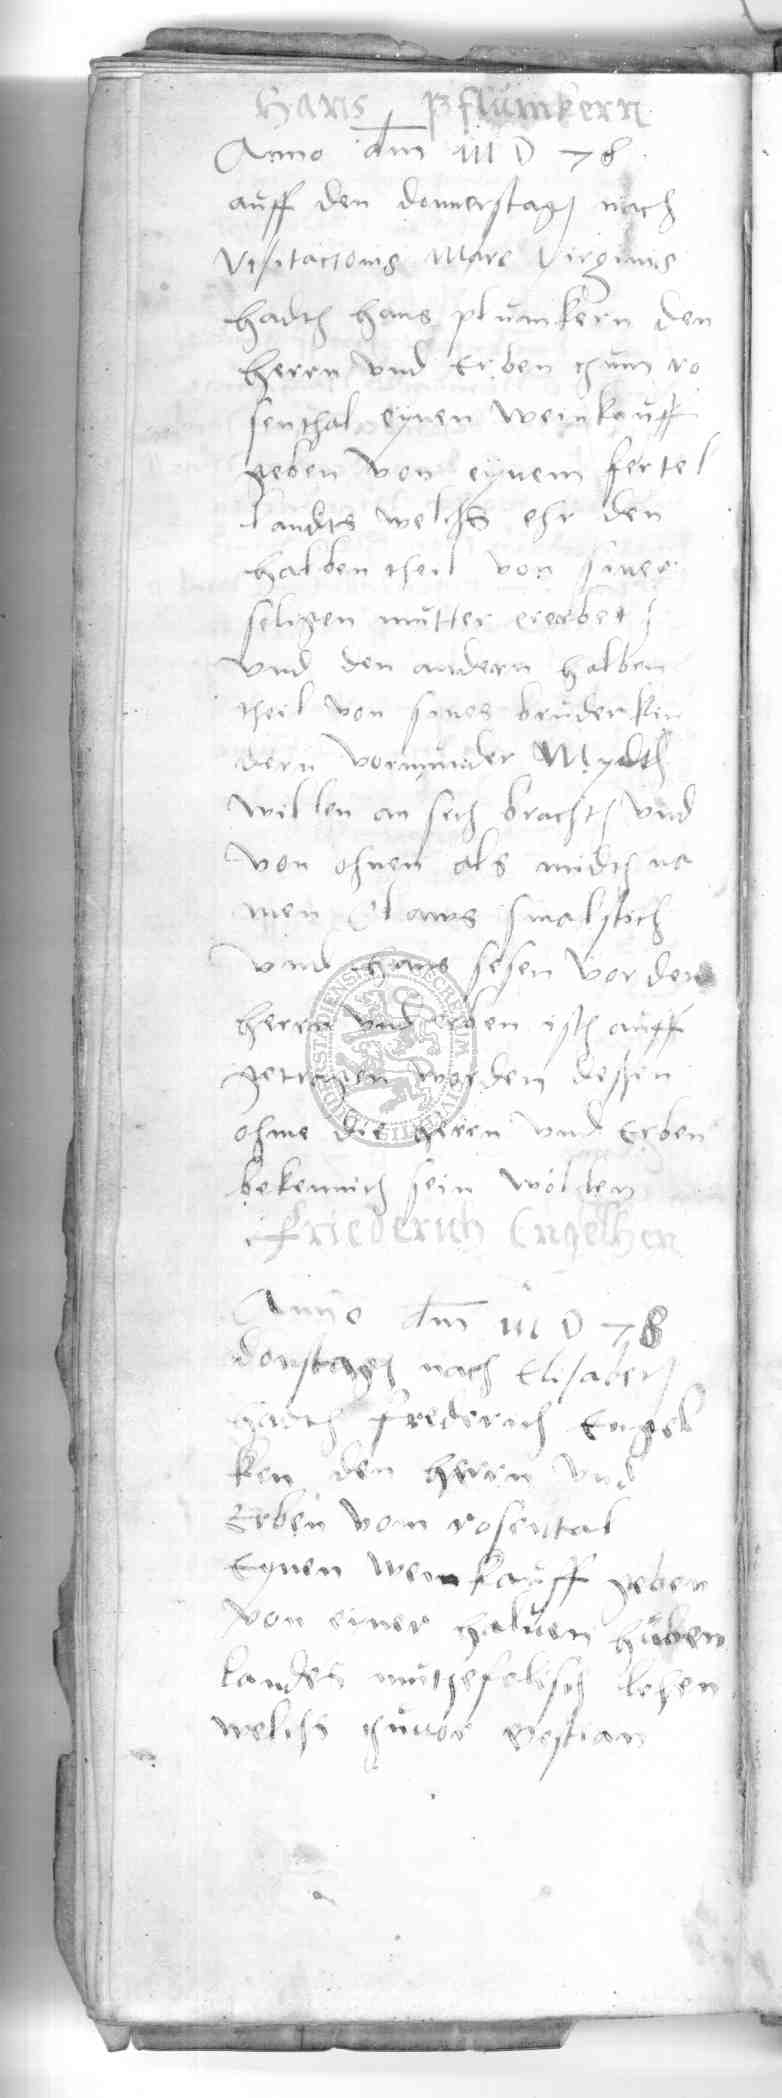 Hans Pflümkern
Anno dm M D 78
auff den donnerstagh nach
Visitacionis Marie Virginis
hadth hans plümkern den
herrn vnd Erben thum ro
senthal eynen weinkouff
geben von eynem fertel
landts welchs ehr den
halben theil von siner
seligen mutter ererbet
vnd den andern halben
theil von sines bruder kin
dern vormunder Mydth
willen an sich brachth vnd
von ohnen als midth na
men Claws smalstich
vnd hans sesen vor den
herrn vnd erben isth auff
getragen worden dessen
ohme die herrn vnd Erben
bekennich sein wolden
Friederich Engelken
Anno dm M D 78
donstagh nach Elisabeth
hadth frederich Engel
ken den herrn vnd
Erben vom rosental
Eynen weinkauff geben
von einer haluen huben
landes lehen
welchs thuuor